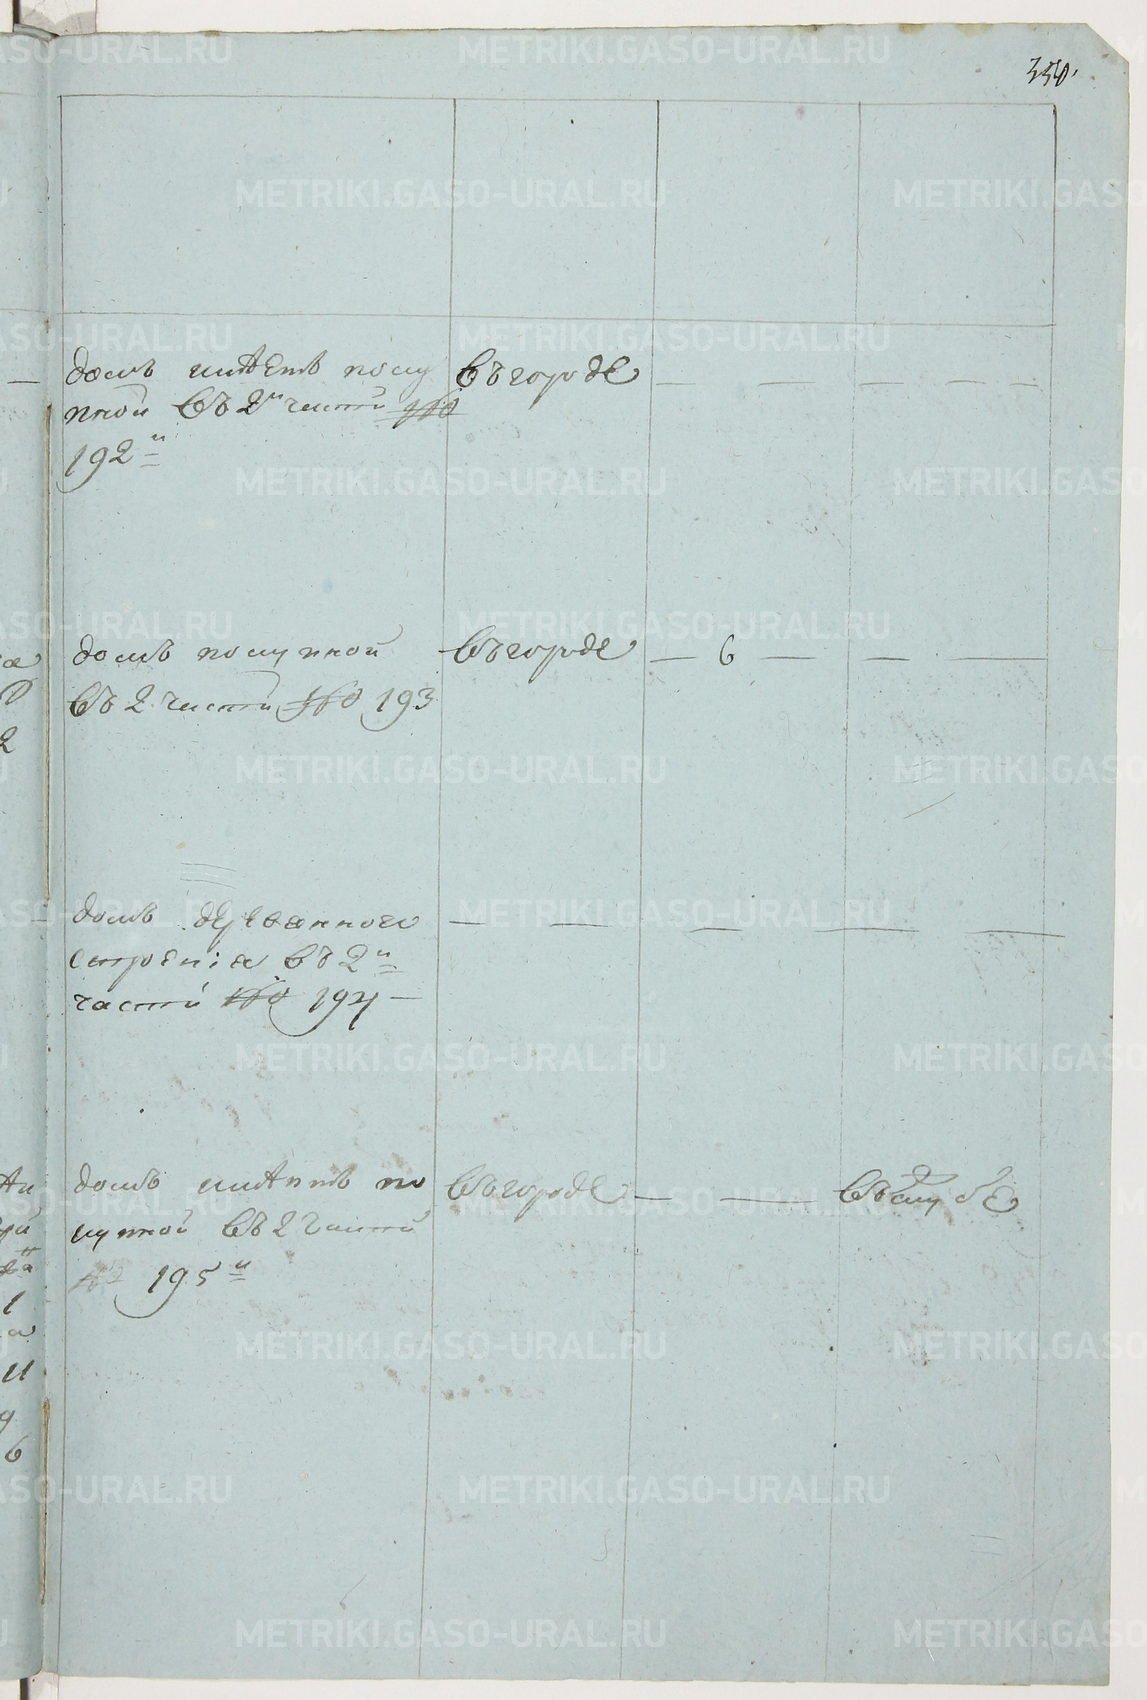 350.
домъ имѣетъ поку въ городе — — — —
пной въ 2й части №
192й
домъ покупной въ городе — 6 — — —
въ 2 части № 193
домъ деревянного — — — — —
строения въ 2й
части № 194 —
домъ имѣетъ по въ городе — — въ службе
купной въ 2 части
№ 195й
METRIKI.GASO-URAL.RU